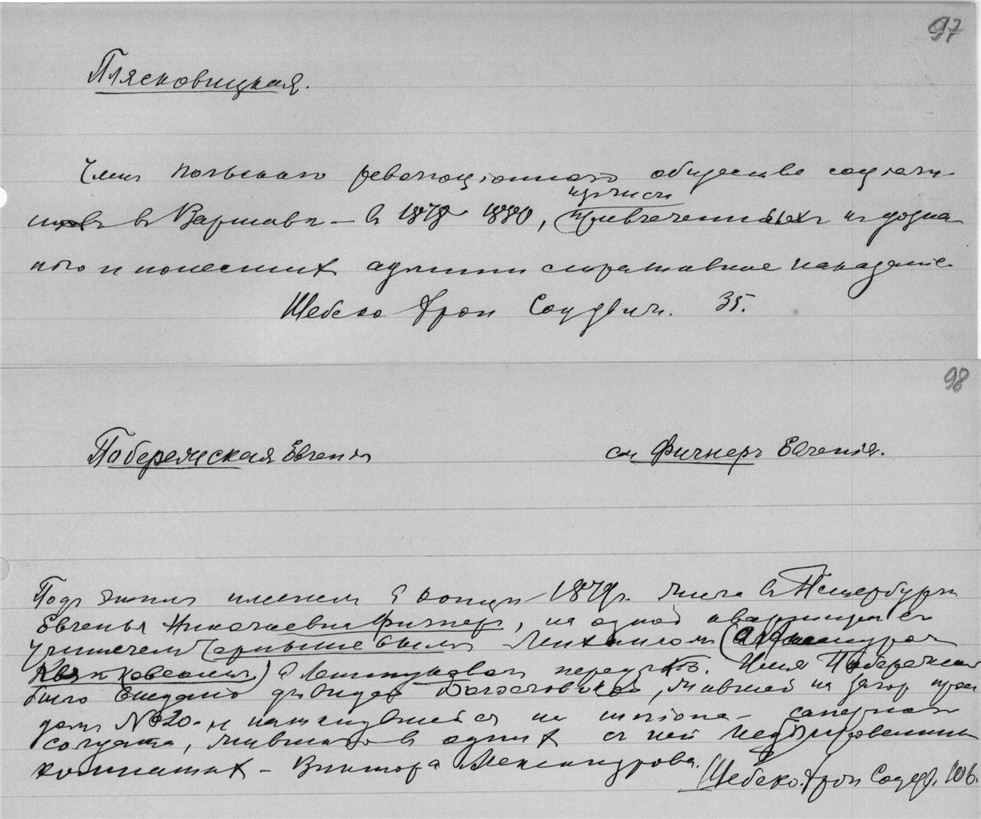 97
Плясковицкая.
Член польского революционного общества социали-
стов в Варшаве – в 1878 1880,
из числа
привлеченных к дозна-
нию и понесших административное наказание.
Шебеко Хрон Соц движ. 35.
98
Побережская Евгения см Фигнер Евгения.
Под этим именем в конце 1879 г. жила в Петербурге
Евгенья Николаевна Фигнер, на одной квартире с
учителем Чернышевым Лещинском (Александром
Квятковским) в Лештуковом переулке. Имя Побережской
было выдано Богословской, жившей на
доме № 20 и на шпиона – саперного
солдата, жившего в одних с ней меблированных
комнатах – Виктора Александрова.
Шебеко. Хрон Соц дв. 106.